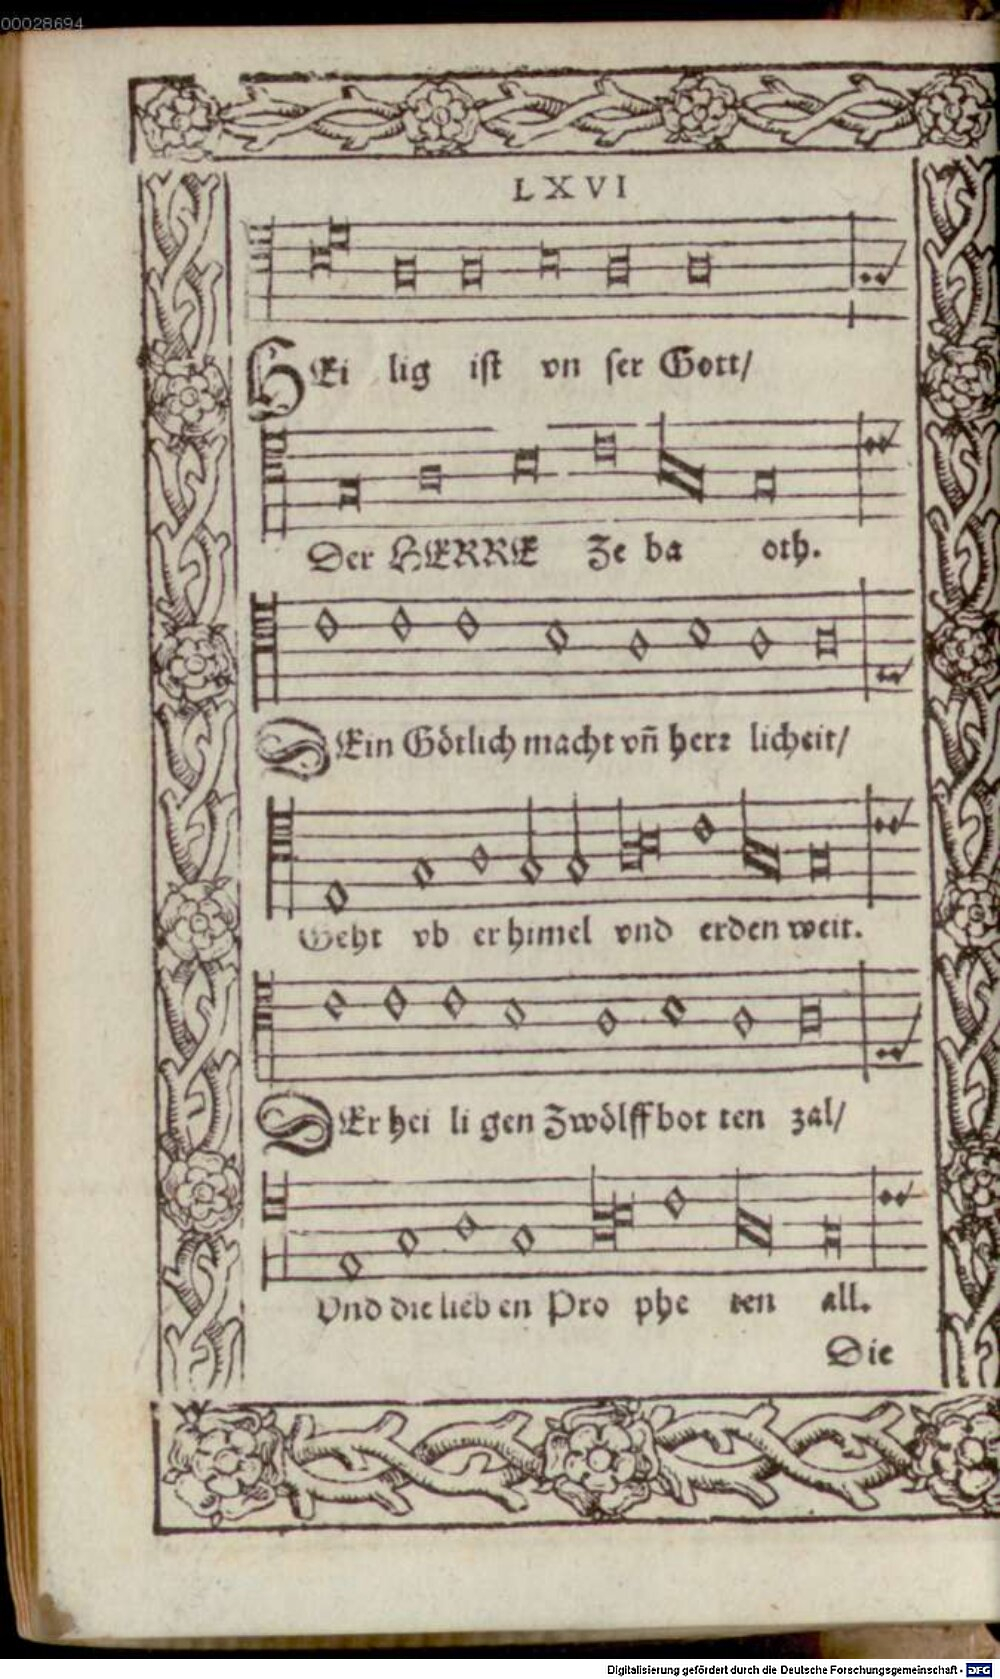 00028694
LXVI
HEi lig iſt vn ſer Gott/
Der HERRE Ze ba oth.
SEin Götlich macht vn̄ herꝛ licheit/
Geht vb er himel vnd erden weit.
DEr hei li gen Zwölff bot ten zal/
Vnd die lieb en Pro phe ten all.
Die
Digitalisierung gefördert durch die Deutsche Forschungsgemeinschaft - DFG